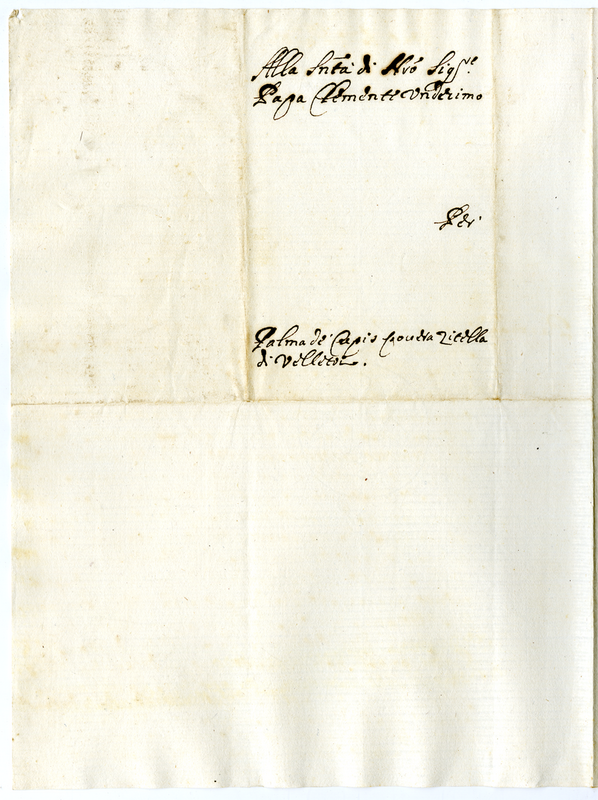 Alla Sntà di Nrõ Sigre.
Papa Clemente Undecimo
Per
Palma de Capis povera Zitella
di Velletri.